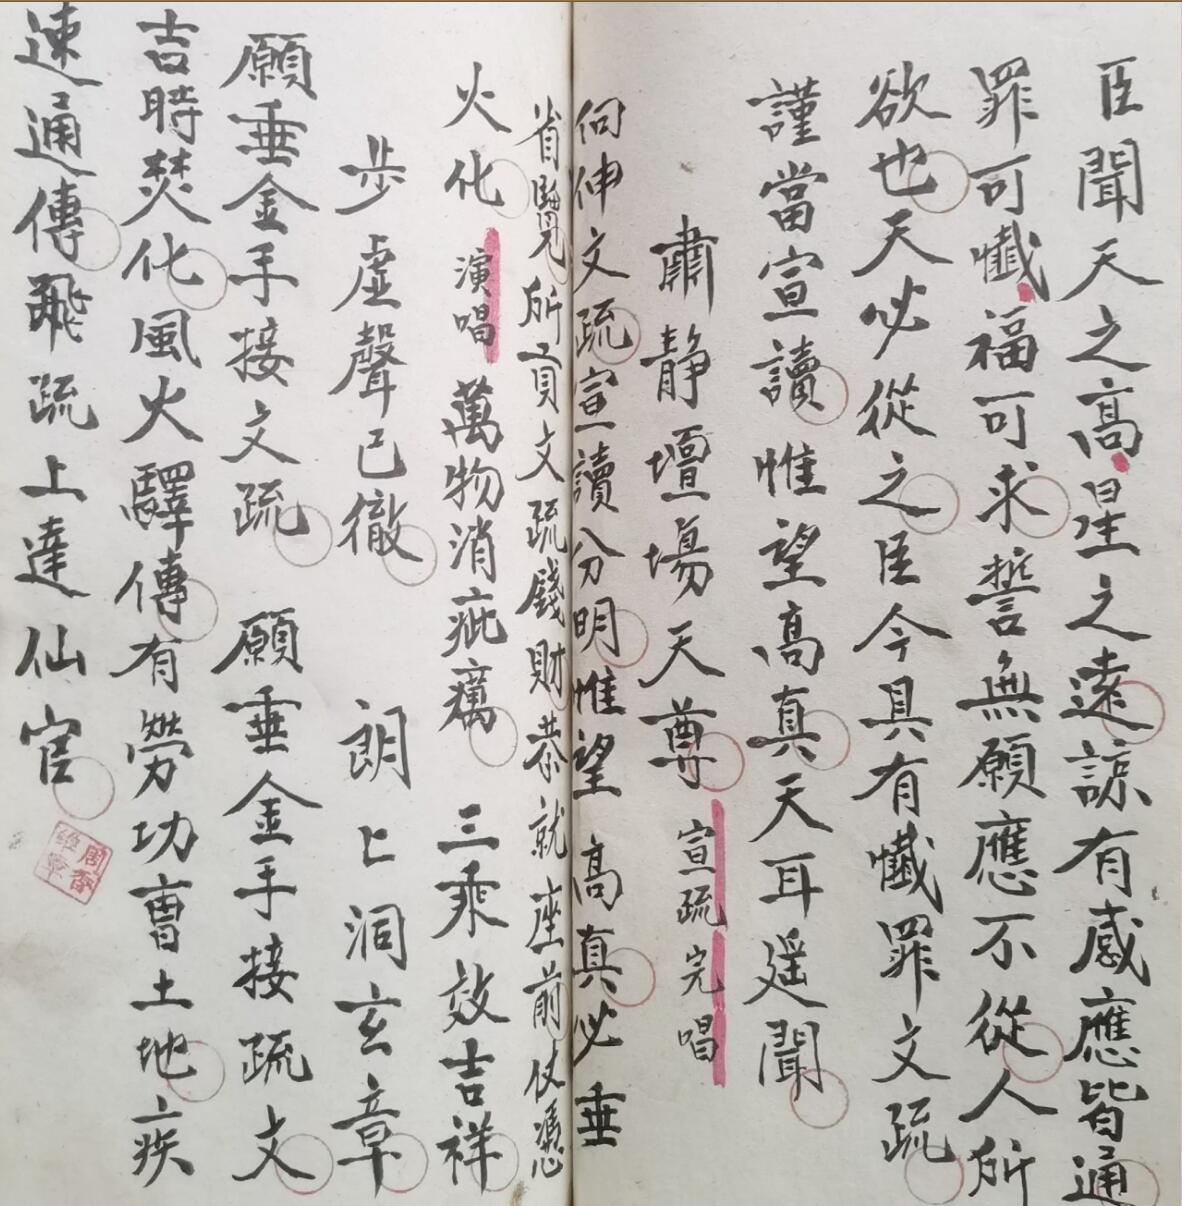 臣聞天之高星之遠諒有感應皆通
罪可懺福可求誓無願應不從人所
欲也天必從之臣今具有懺罪文疏
謹當宣讀惟望高真天耳遥聞
肅静壇場天尊 宣疏完唱
向伸文疏宣讀分明惟望高真必垂
省覽所賫文疏錢財恭就座前仗憑
火化 演唱 萬物消疵癘 三乘效吉祥
步虚聲已徹 朗上洞玄章
願垂金手接文疏 願垂金手接疏文
吉時焚化風火驛傳有勞功曹土地疾
速通傳飛疏上達仙官